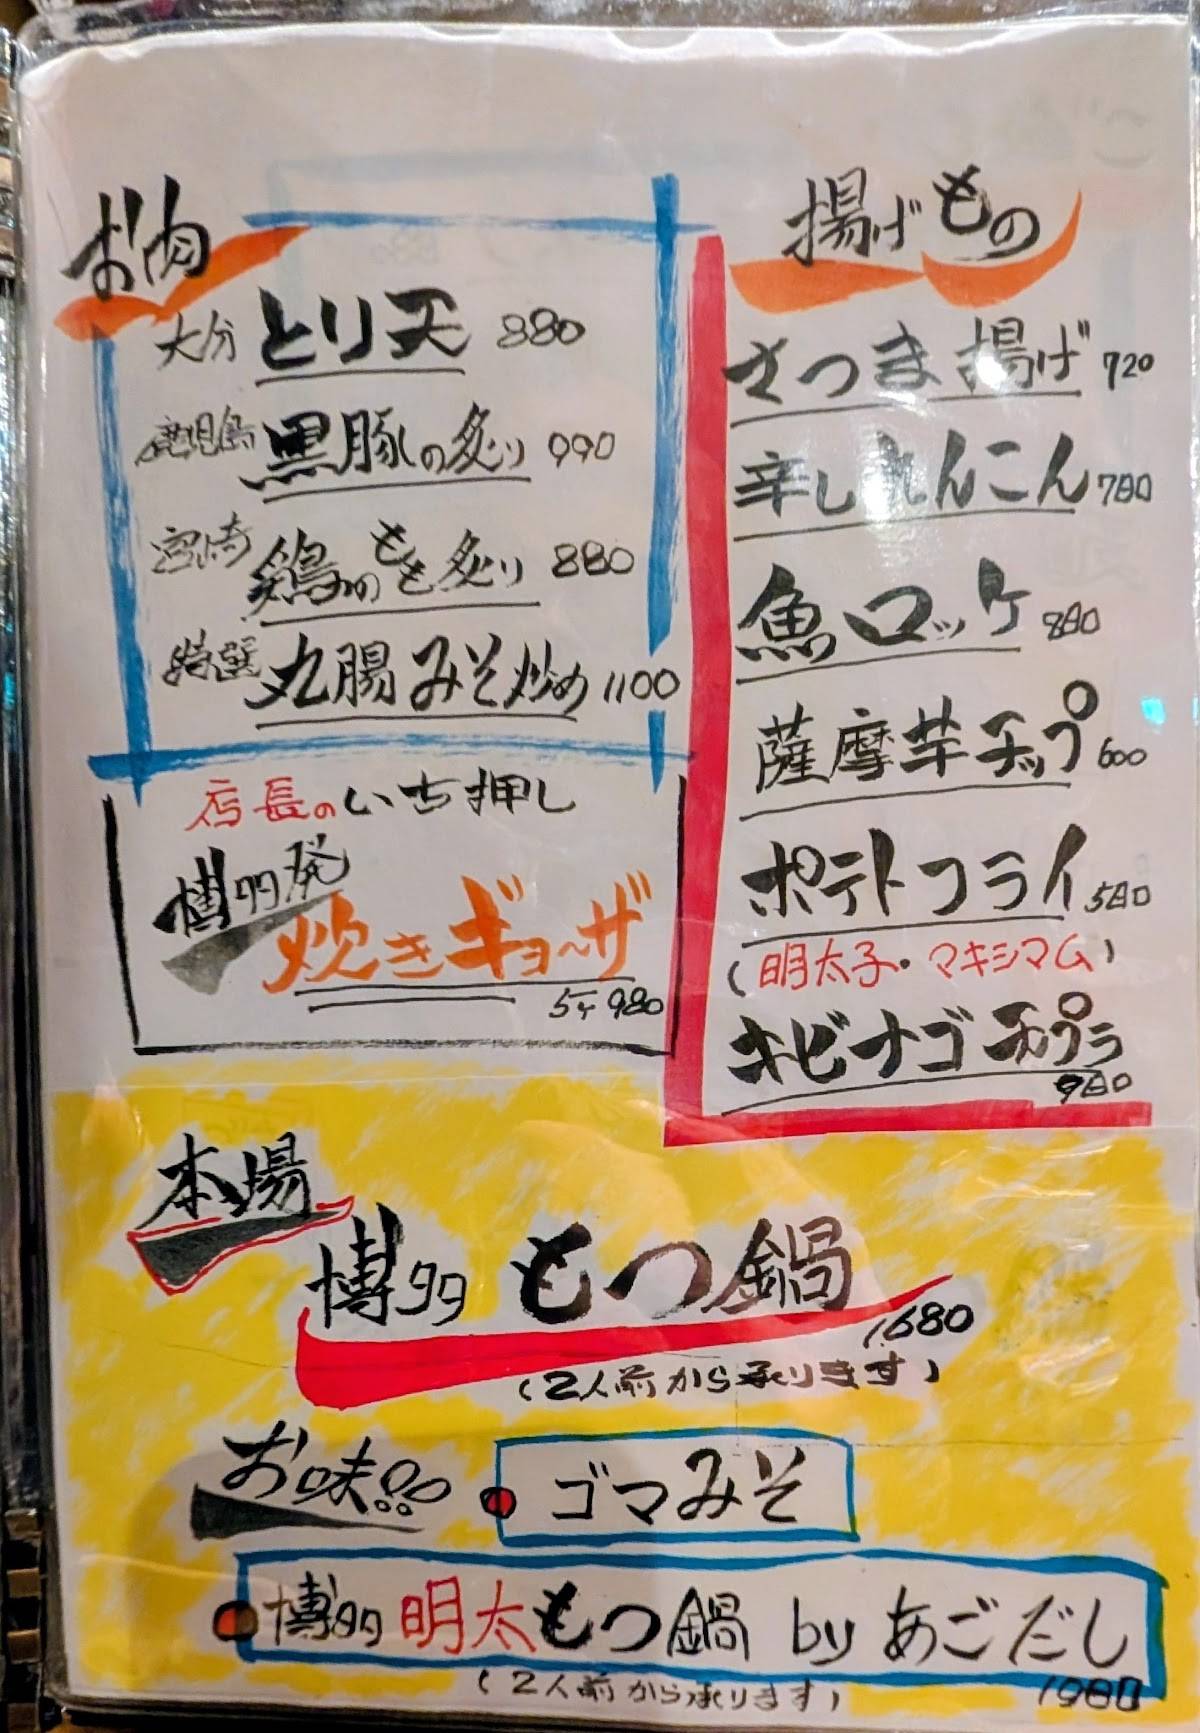 お肉
大分 とり天 880
鹿児島 黒豚の炙り 990
宮崎 鶏のもも炙り 880
特選 丸腸みそ炒め 1100
店長のいち押し
博多発
炊きギョーザ
5ケ 980
揚げもの
さつま揚げ 720
辛しれんこん 780
魚ロッケ 880
薩摩芋チップ 600
ポテトフライ 580
(明太子・マキシマム)
キビナゴ天プラ
980
本場
博多 もつ鍋
1680
(2人前から承ります)
お味
ゴマみそ
博多明太もつ鍋 by あごだし
(2人前から承ります) 1980